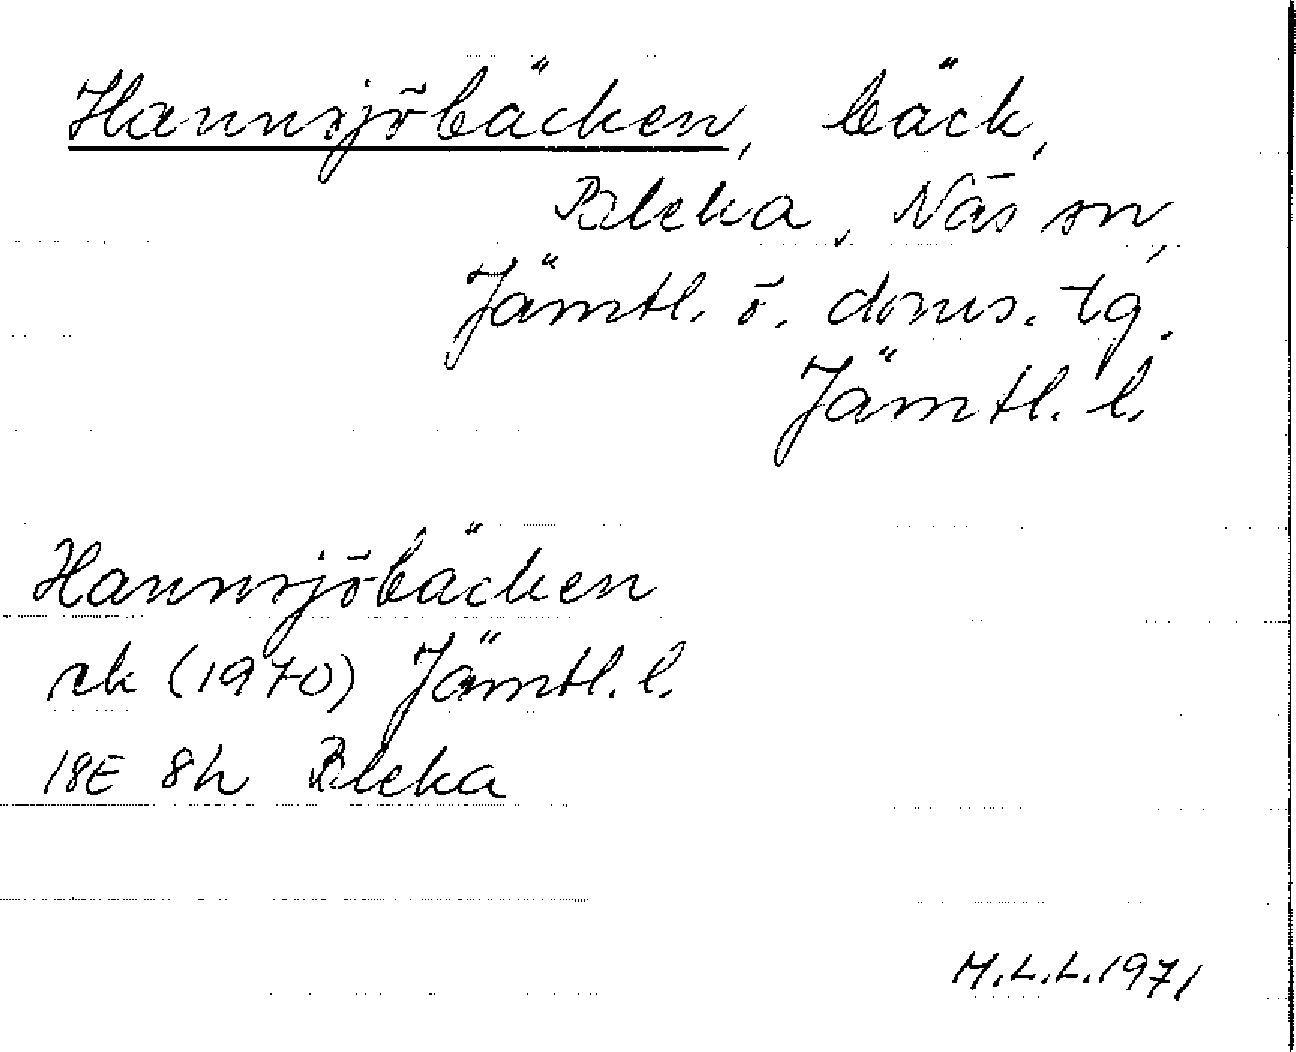 Hannsjöbäcken, bäck,
Bleka, Näs sn,
Jämtl. ö. doms. tg.
Jämtl. l.
Hannsjöbäcken
rk (1970) Jämtl. l.
18E 8h Bleka
M.L.L. 1971